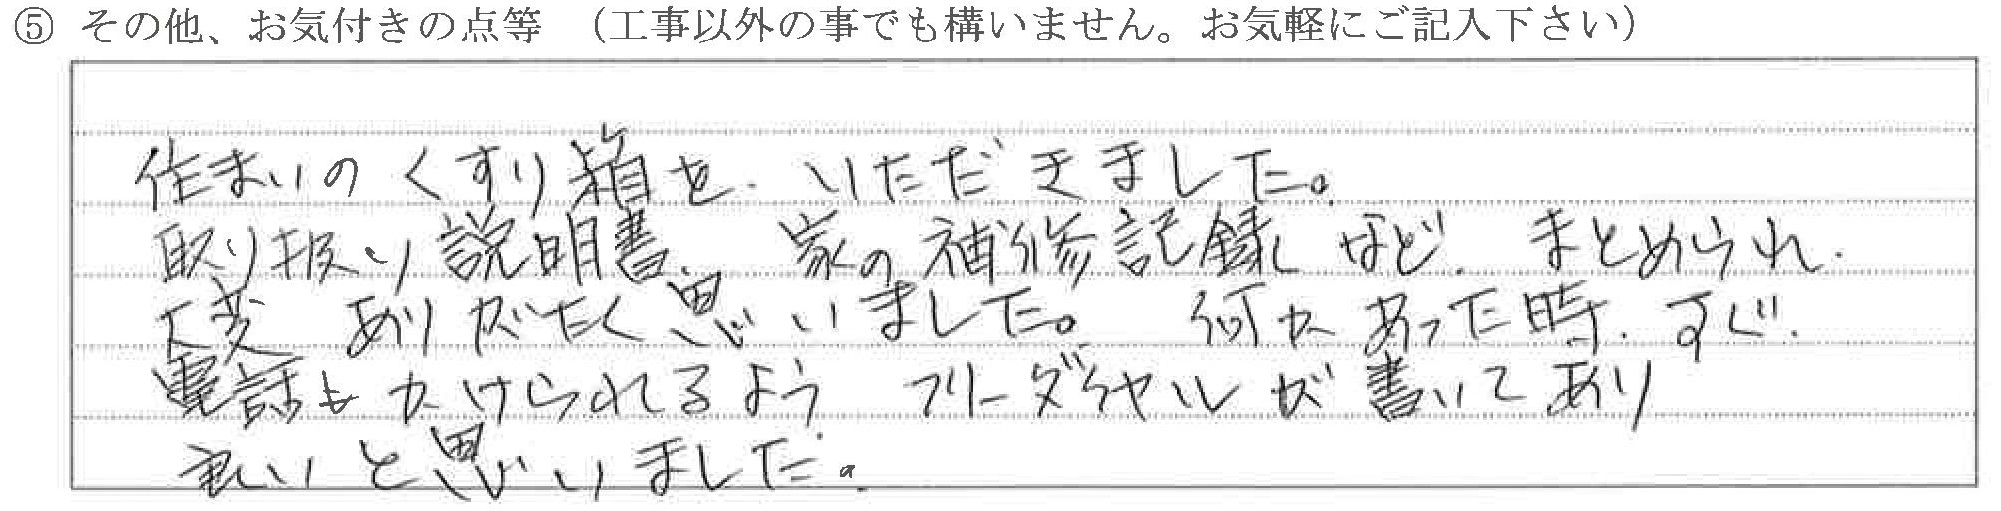 ⑤ その他、お気付きの点等 （工事以外の事でも構いません。お気軽にご記入下さい）
住まいのくすり箱を、いただきました。
取り扱い説明書、家の補修記録など、まとめられ、
大変、ありがたく思いました。何かあった時、すぐ、
電話もかけられるよう、フリーダイヤルが書いてあり
良いと思いました。